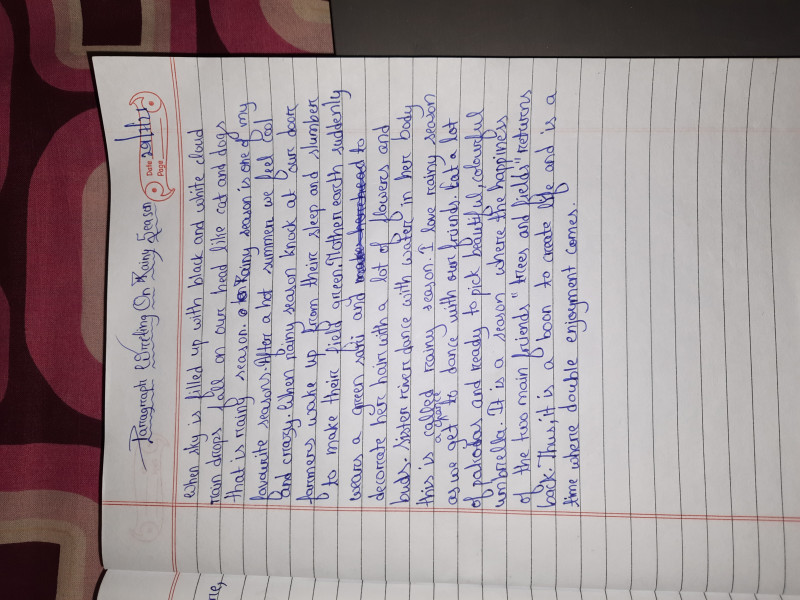 Paragraph Writing On Rainy Season
Date 29/7/21
Page
When sky is filled up with black and white cloud
rain drops fall on our head like cat and dogs
that is rainy season. Rainy season is one of my
favourite seasons. After a hot summer we feel cool
and crazy. When rainy season knock at our door
farmers wake up from their sleep and slumber
to make their field green. Mother earth suddenly
wears a green sari and to
decorate her hair with a lot of flowers and
buds. Sister river dance with water in her body
this is called rainy season. I love rainy season
as we get a chance to dance with our friends. Eat a lot
of pakohas and ready to pick beautiful, colourful
umbrella. It is a season where the happiness
of the two main friends "trees and fields" returns
back. Thus, it is a boon to create life and is a
time where double enjoyment comes.